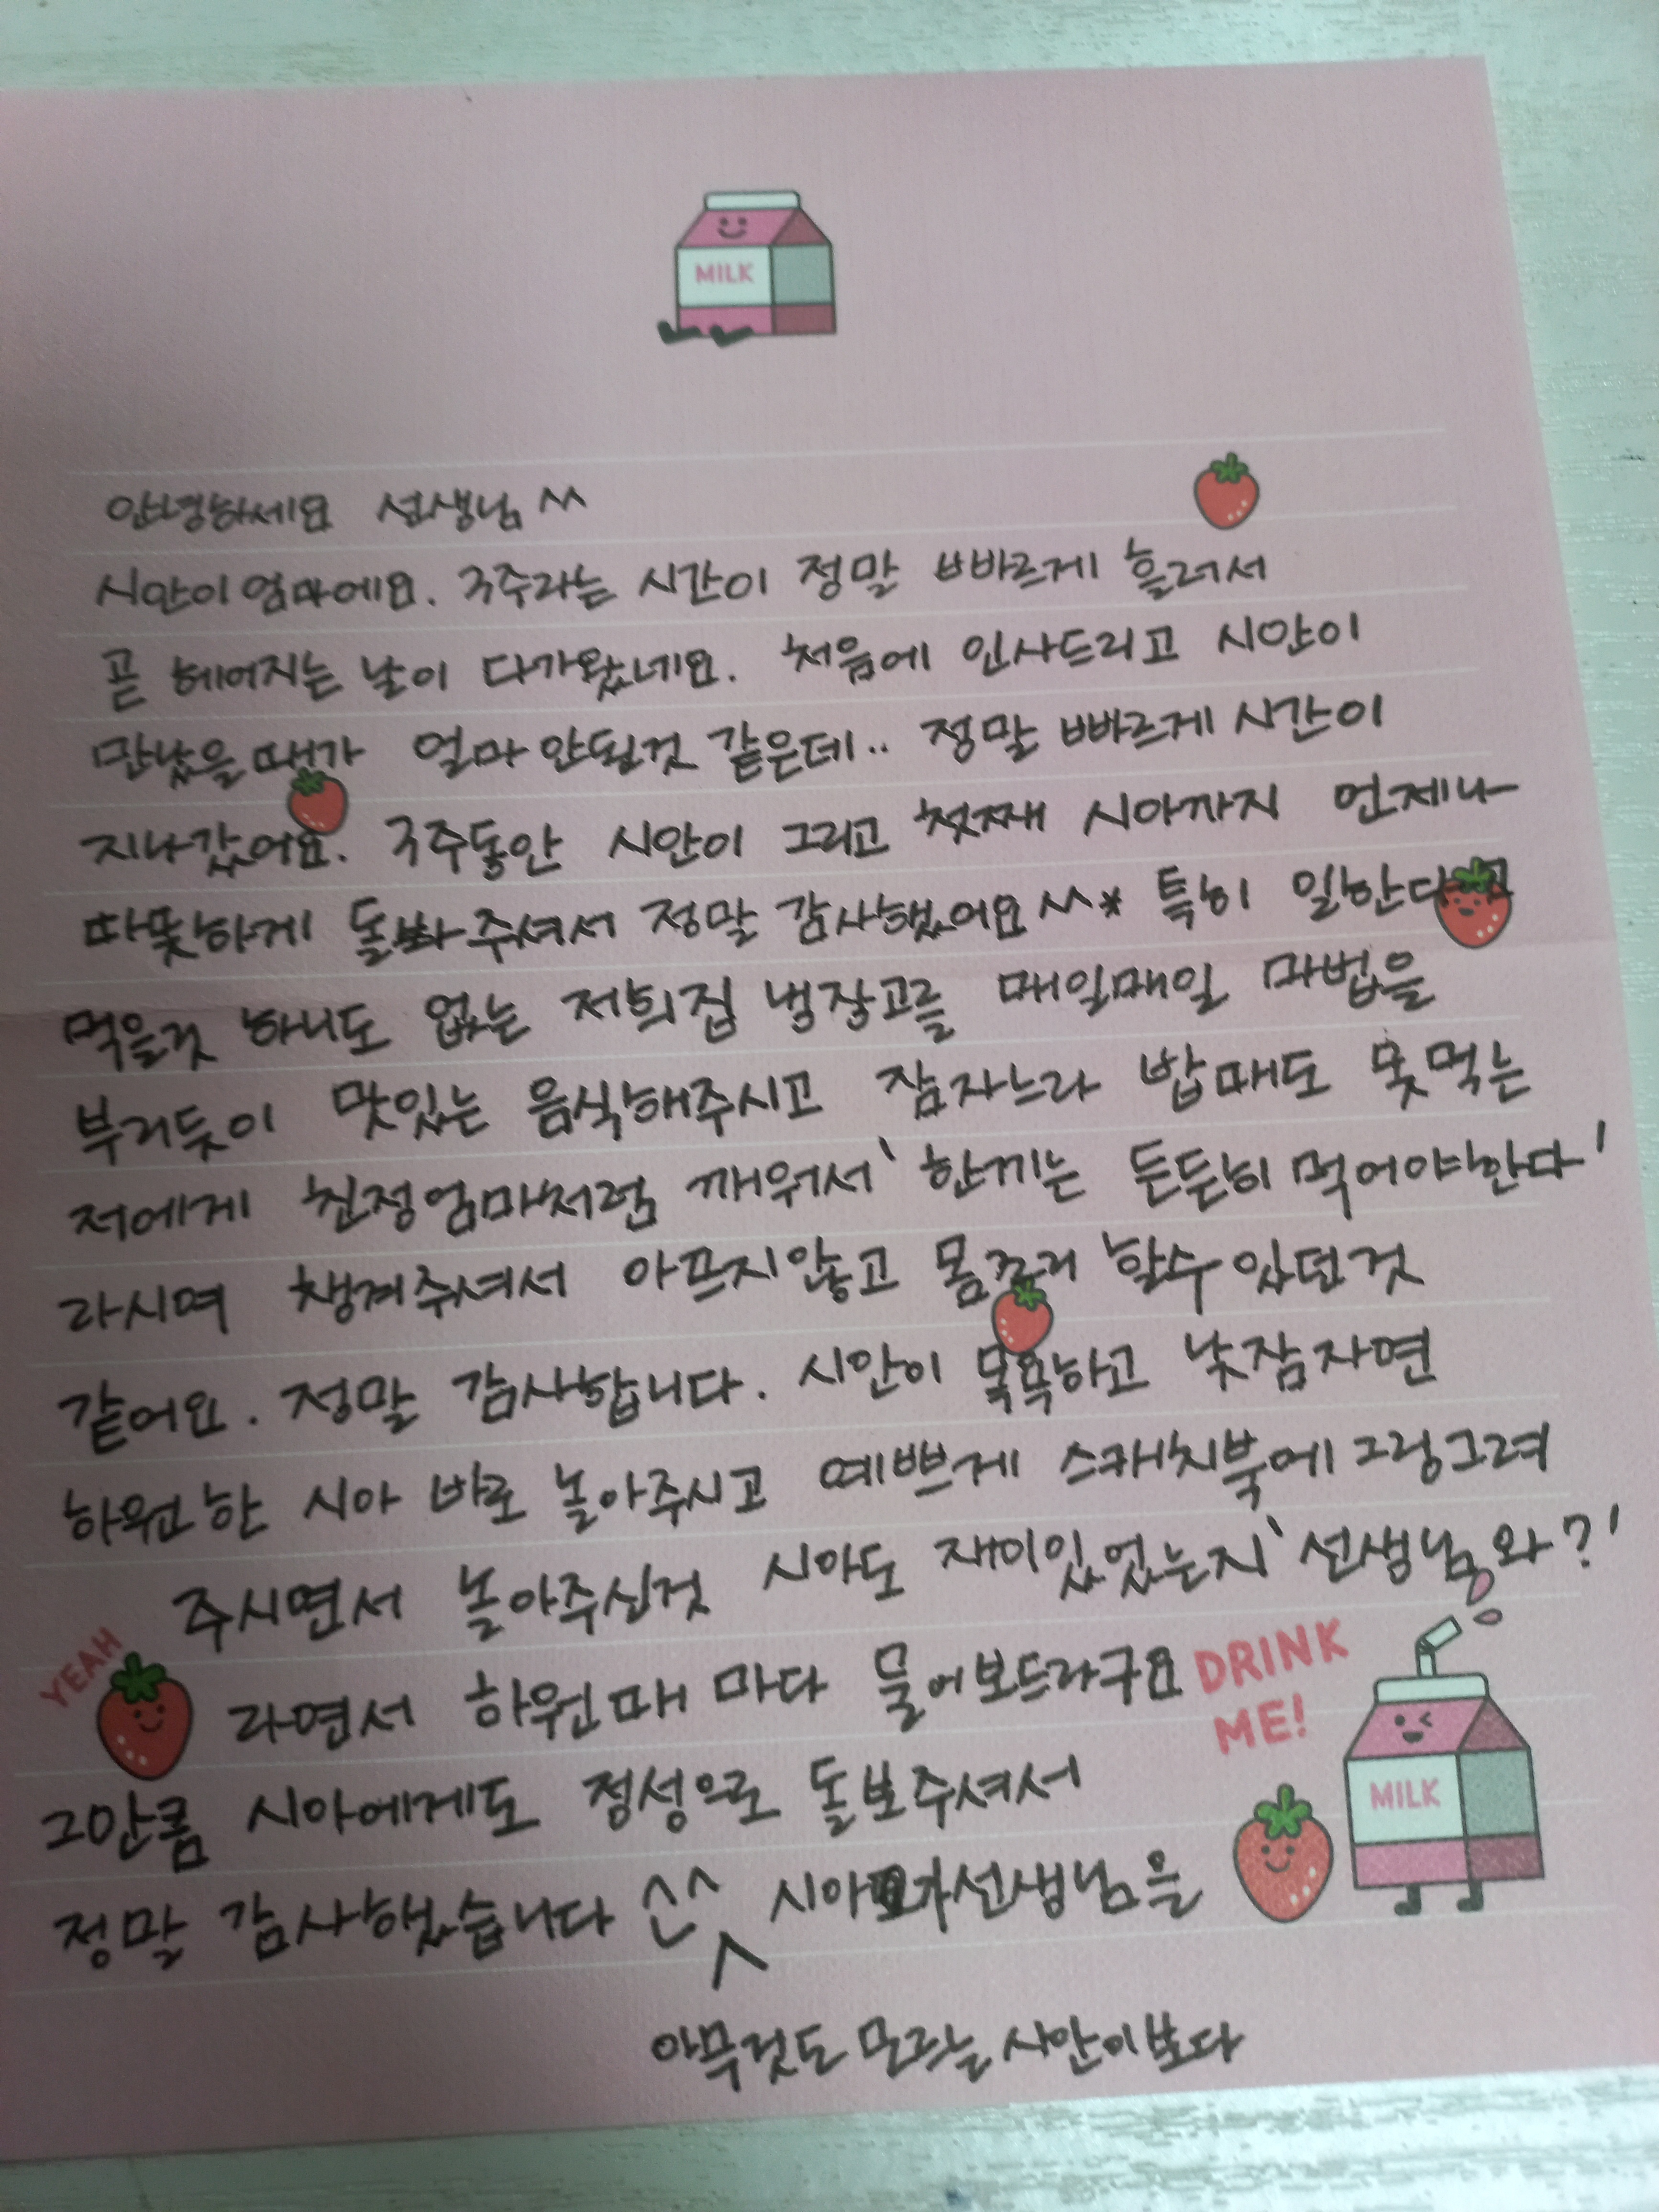 MILK
안녕하세요 선생님 ^^
시안이 엄마에요. 3주라는 시간이 정말 빠르게 흘러서
곧 헤어지는 날이 다가왔네요. 처음에 인사드리고 시안이
만났을때가 얼마 안된것 같은데.. 정말 빠르게 시간이
지나갔어요. 3주동안 시안이 그리고 첫째 시아까지 언제나
따뜻하게 돌봐주셔서 정말 감사했어요^^* 특히 일한다고
먹을것 하나도 없는 저희집 냉장고를 매일매일 마법을
부리듯이 맛있는 음식해주시고 잠자느라 밥때도 못먹는
저에게 친정엄마처럼 깨워서 '한끼는 든든히 먹어야한다'
라시며 챙겨주셔서 아프지않고 몸조리 할수있던것
같아요. 정말 감사합니다. 시안이 목욕하고 낮잠자면
하원한 시아 바로 놀아주시고 예쁘게 스캐치북에 그림그려
주시면서 놀아주신것 시아도 재미있었는지 '선생님 와?'
YEAH
라면서 하원때 마다 물어보드라구요
DRINK
ME!
그만큼 시아에게도 정성으로 돌보주셔서
MILK
정말 감사했습니다 ^^ 시아가 선생님을
아무것도 모르는 시안이보다